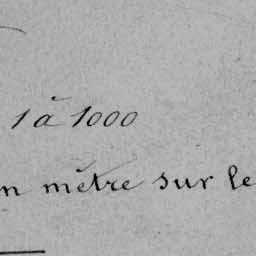 1 à 1000
n mètre sur le